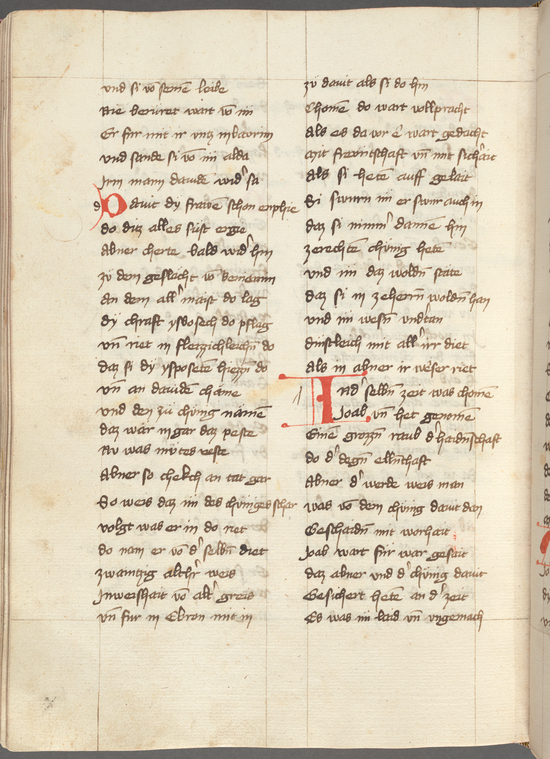 und si võ seinem leibe
Nie berüret wart võ im
Er für mit ir vnʒ inbavrim
und sande si võ im alda
Irm mann dauide wid' sa
Do dauit dy frawe schon enphie
do diʒ alles süst ergie
abner cherte bald wid' hin
ʒü dem geslächt võ Beniamin
an dem all' maist do lag
dy chraft ysbosech do pflag
vñ riet in fleiʒʒichleichñ do
daʒ si dy ysposete hieʒʒñ do
vñ an dauide chäme
und den ʒü chünig nämen
daʒ wär in gar daʒ peste
Nv was mütes veste
Abner so chekch an tat gar
So weis daʒ im des chüniges schar
volgt was er in do riet
do nam er võ d' selbñ diet
ʒwainʒig althr' weis
Inweishait võ alt' greis
vñ für in Ebron mit in
ʒü dauit als si do hin
Chomẽ do wart vollpracht
als es da vor ê wart gedacht
Mit frevntschaft vñ mit sich'ait
als si hete auff gelait
Si swurn im er swür auch in
daʒ si nimm' dannẽ hin
ʒerechtẽ chünig hete
und im daʒ woldñ stäte
daʒ si in ʒeherrñ woldñ han
und im wesñ undtan
dinstleich mit all' irr diet
als in abner ir weser riet
In d' selbñ ʒeit was chomẽ
Joab vñ het genomẽ
Einẽ groʒʒñ raub d' haidnschaft
do d' degñ ellnthaft
Abner d' werde weis man
was võ dem chünig dauit dan
Geschaidñ mit worhait
Joab wart für war gesait
daʒ abner und d' chünig dauit
Gesichert hetẽ an d' ʒeit
Es was im laid vñ vngemach